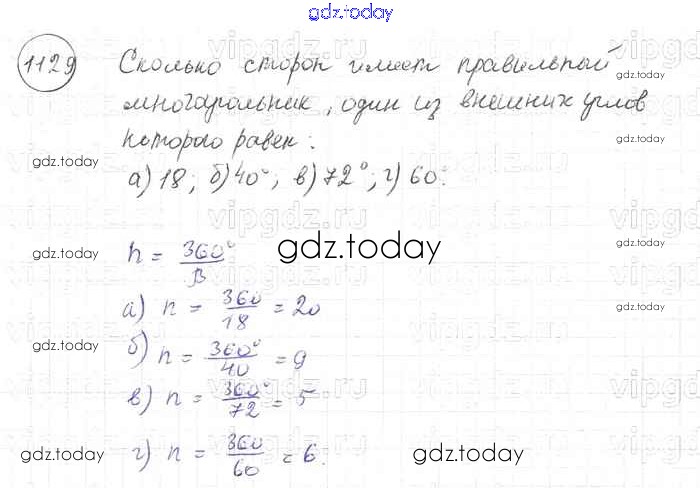 gdz.today
1129 Сколько сторон имеет правильный
gdz.today
многоугольник, один из внешних углов
которого равен:
gdz.today
а) 18; б) 40°; в) 72°; г) 60°.
gdz.today
n = 360°/β
gdz.today
gdz.today
а) n = 360/18 = 20
gdz.today
б) n = 360°/40 = 9
gdz.today
в) n = 360°/72 = 5
г) n = 360/60 = 6.
gdz.today
gdz.today
vipgdz.ru